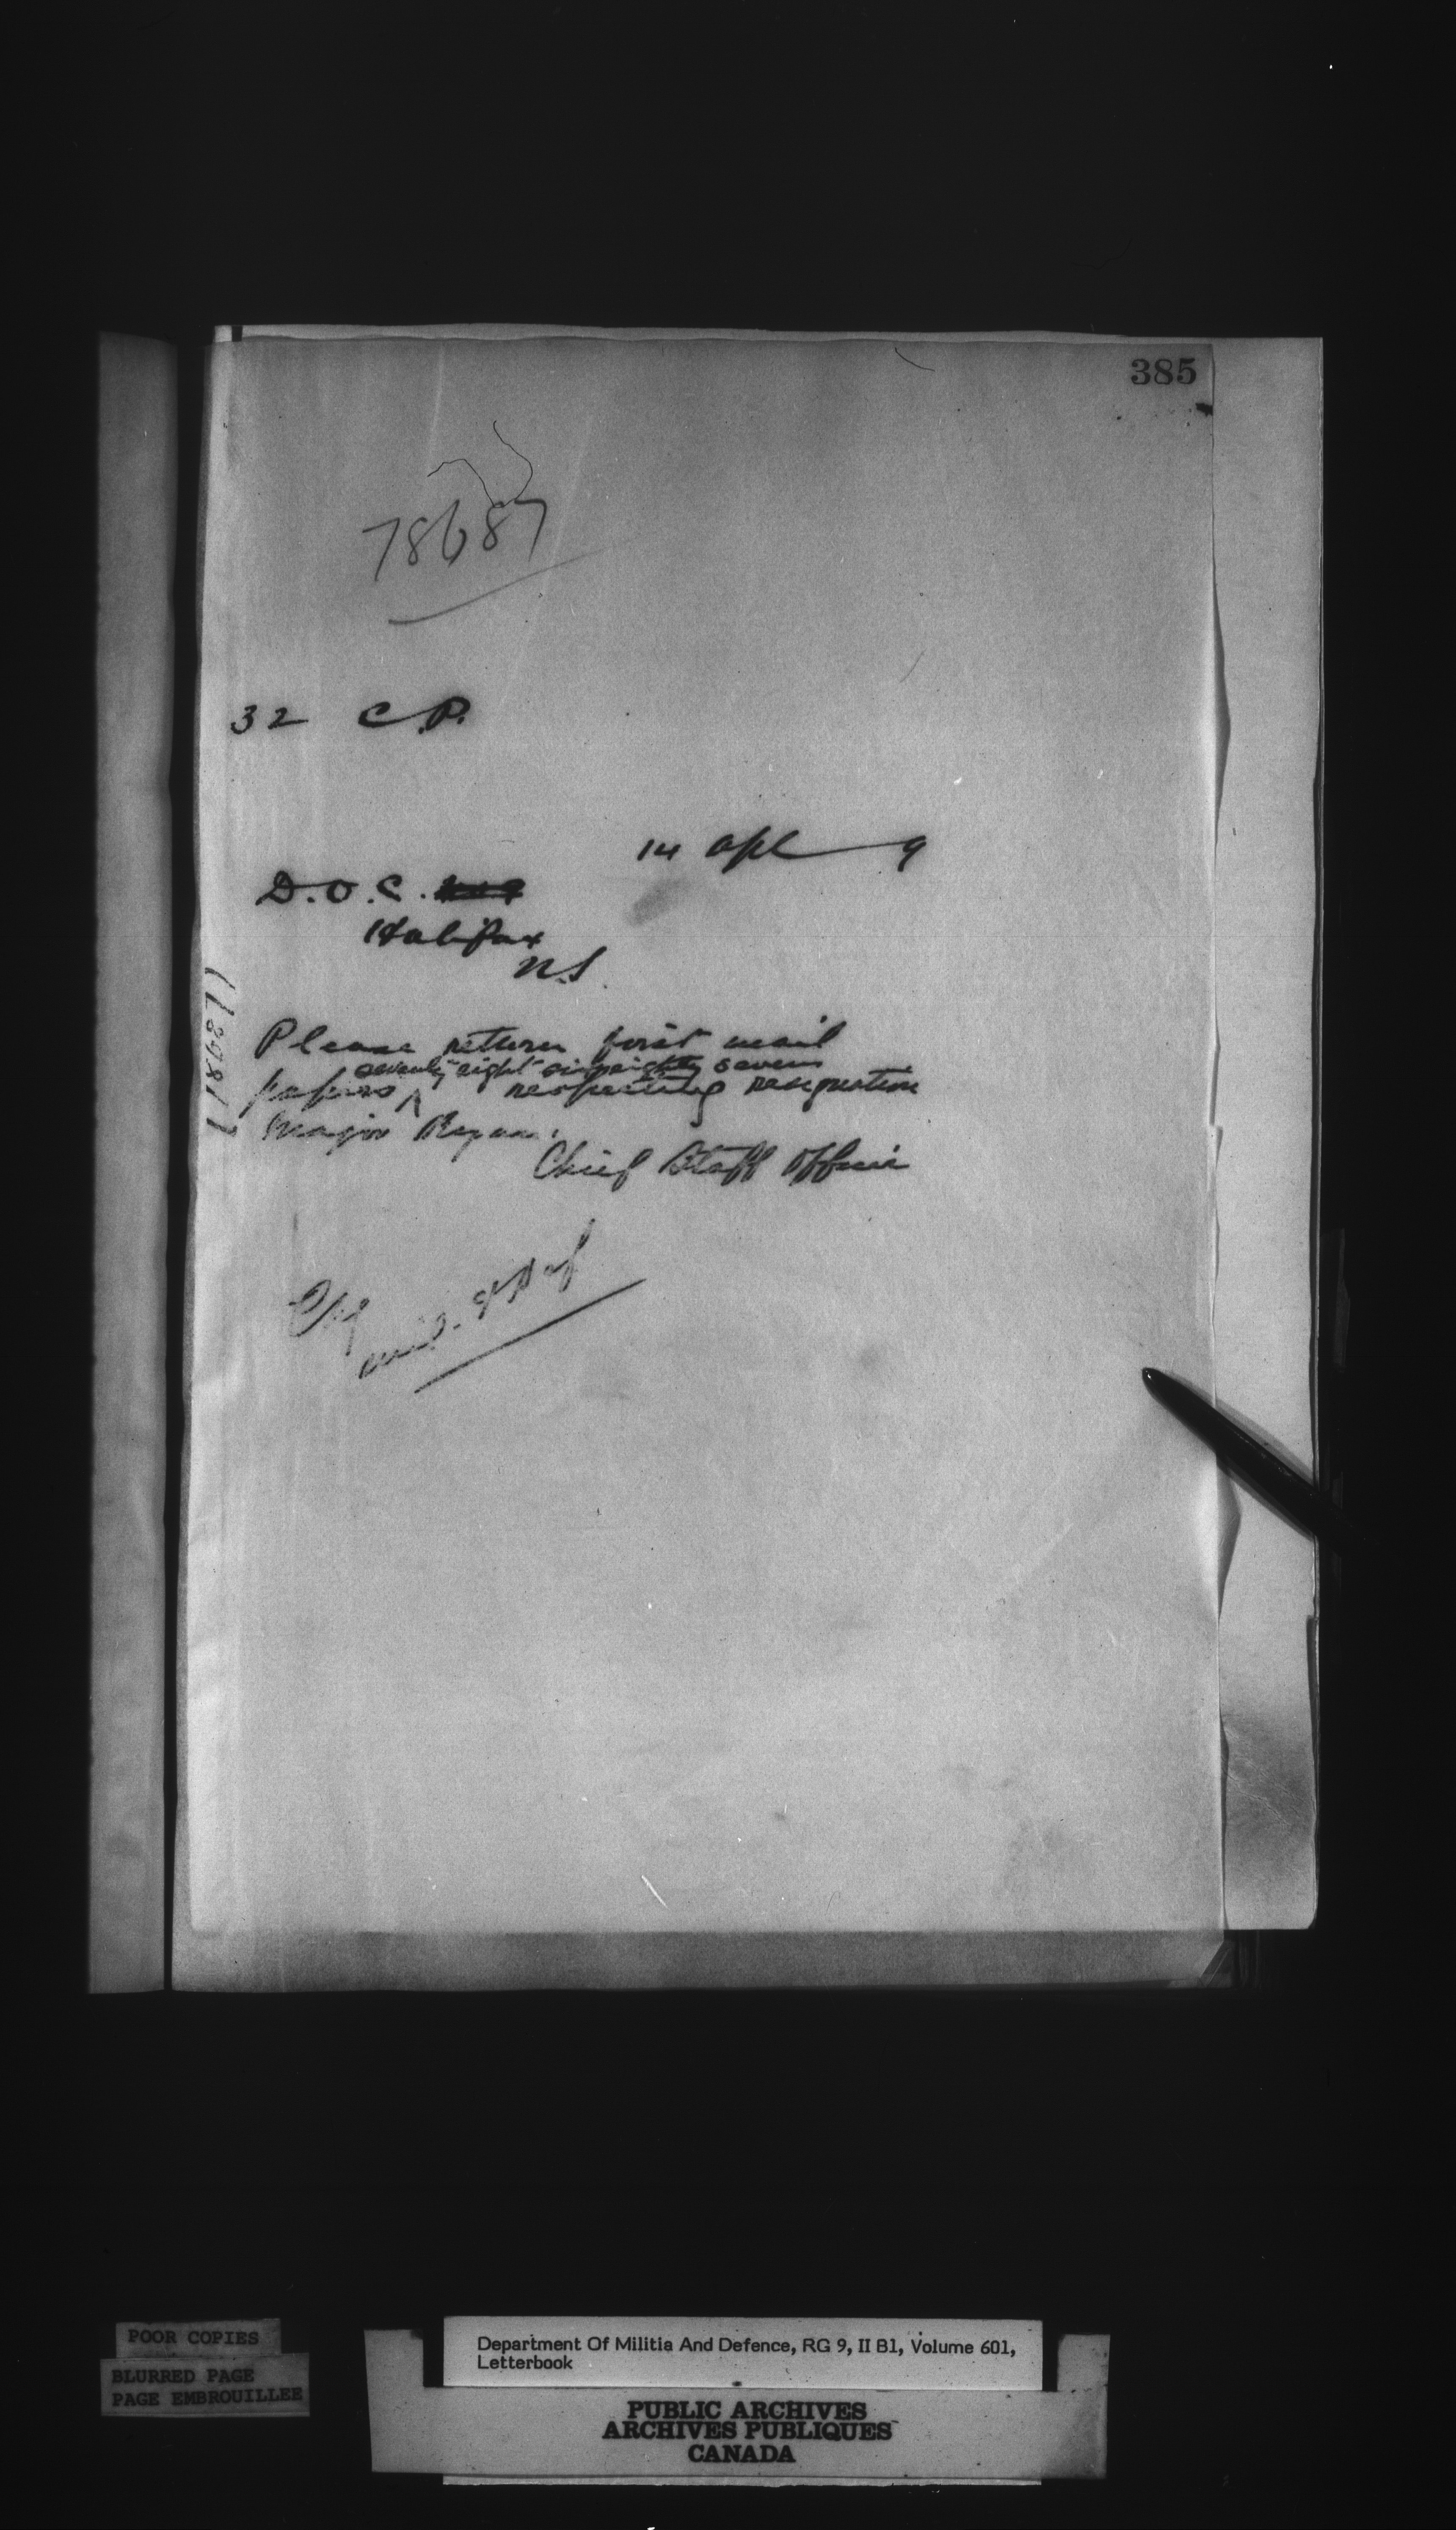 385
78687
32 C.P.
14 Apl 9
D.O.C.
Halifax
N.S.
(78687)
Please return first mail
seventy eight six eighty seven
papers ^ respecting resignation
Major
Chief Staff Officer
Chg
Mil. & Def
POOR COPIES
BLURRED PAGE
PAGE EMBROUILLEE
Department Of Militia And Defence, RG 9, II B1, Volume 601,
Letterbook
PUBLIC ARCHIVES
ARCHIVES PUBLIQUES
CANADA